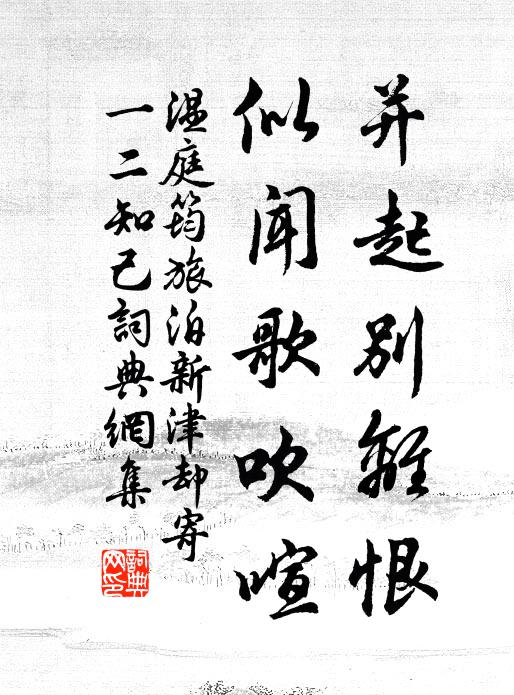 并起别離恨
似聞歌吹喧
温庭筠旅泊新津却寄
一二知己詞典網集
詞典
网印